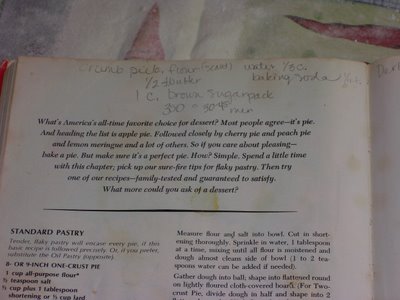 crumb pick. flour (2 card) water ⅓ c.
½ butter baking soda
1 c. brown sugar pack
350 - 30-45 min
What's America's all-time favorite choice for dessert? Most people agree—it's pie.
And heading the list is apple pie. Followed closely by cherry pie and peach pie
and lemon meringue and a lot of others. So if you care about pleasing—
bake a pie. But make sure it's a perfect pie. How? Simple. Spend a little time
with this chapter, pick up our sure-fire tips for flaky pastry. Then try
one of our recipes—family-tested and guaranteed to satisfy.
What more could you ask of a dessert?
STANDARD PASTRY
Tender, flaky pastry will encase every pie, if this
basic recipe is followed precisely. Or, if you prefer,
substitute the Oil Pastry (opposite).
8- OR 9-INCH ONE-CRUST PIE
1 cup all-purpose flour*
½ teaspoon salt
⅓ cup plus 1 tablespoon
shortening or ⅓ cup lard
Measure flour and salt into bowl. Cut in short-
ening thoroughly. Sprinkle in water, 1 tablespoon
at a time, mixing until all flour is moistened and
dough almost cleans side of bowl (1 to 2 tea-
spoons water can be added if needed).
Gather dough into ball; shape into flattened round
on lightly floured cloth-covered board. (For Two-
crust Pie, divide dough in half and shape into 2